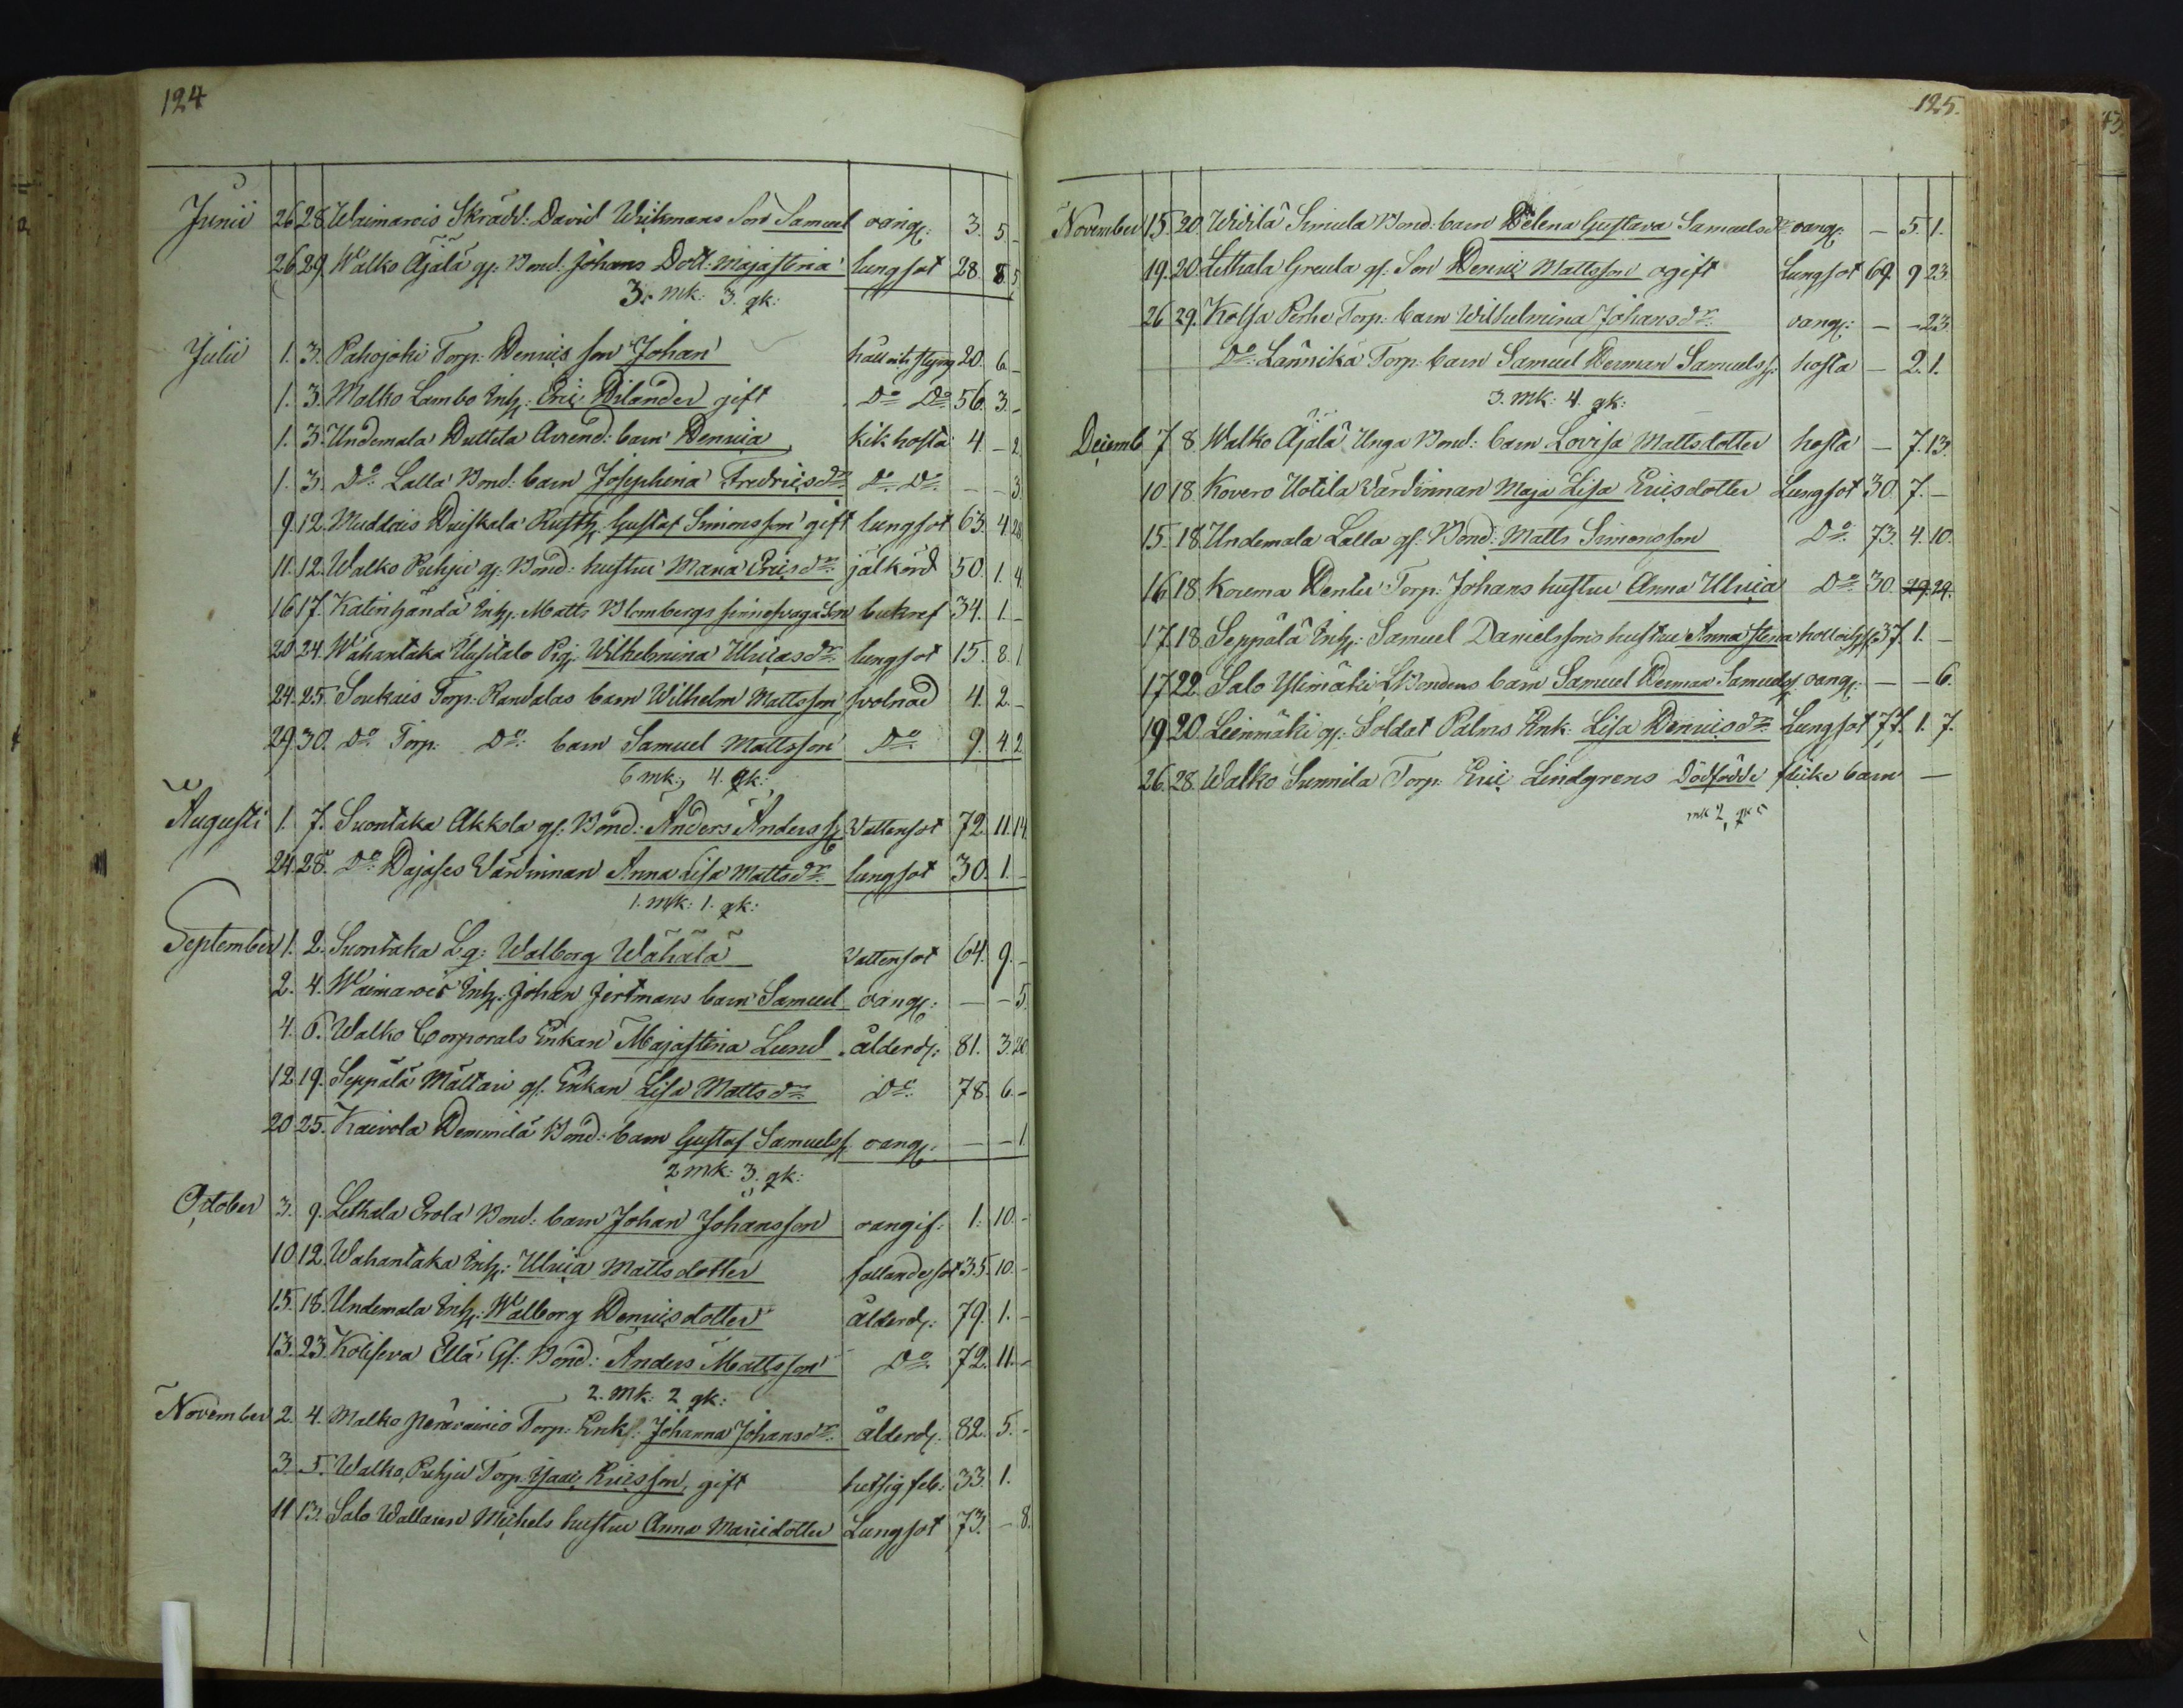 124
Junii 26 28 Waimarois Skrädd: David Wickmans Son Samuel oangf: 3. 5. -
26 29. Walko Äjälä gf: Bond: Johans Dott: Majastina lungsot 28 8 5
3. mk: 3. qk:
Julii 1. 3. Pahojoki Torp: Henrics son Johan håll och styng 20. 6 -
1. 3. Malko Lambo Inh: Eric Hilander gift Do Do 56. 3. -
1. 3. Undemala Huttila Arrend: barn Henrica kik hosta 4. - 2
1. 3. Do Lalla Bond: barn Josephina Fredricsdr Do Do - - 3.
9. 12. Muddais Huiskala Rusth: Gustaf Simonsson gift lungsot 63. 4 28
11. 12. Walko Puhju gf: Bond: hustru Maria Ericsdr jälkörd 50. 1. 4
16 17. Katinhändä Inh: Matts Blombergs sinnesvaga Son bukref 34. 1. -
20 24. Wähäntaka Uusitalo Pig: Wilhelmina Ulricasdr lungsot 15. 8. 1
24. 25. Soukais Torp: Randalas barn Wilhelm Mattsson svolnad 4. 2. -
29 30. Do Torp: Do barn Samuel Mattsson Do 9. 4 2
6 mk: 4. qk:
Augusti 1. 7. Suontaka Akkola gf: Bond: Anders Anderss: Vattensot 72. 11. 14
24. 28. Do Hajases Värdinnan Anna Lisa Mattsdr lungsot 30. 1. -
1. mk: 1. qk:
September 1. 2. Suontaka Lg: Walborg Wähälä Vattensot 64. 9. -
2. 4. Waimarois Inh: Johan Jertmans barn Samuel oangf: - - 5.
4. 6. Walko Corporals Enkan Majastina Lund ålderd: 81. 3. 20
12 19. Seppälä Mältäri gf: Enkan Lisa Mattsdr Do 78. 6. -
20 25. Kaivola Hemmilä Bond: barn Gustaf Samuelss: oangf. - - 1
2 mk: 3. qk:
October 3. 9. Lethala Erola Bond: barn Johan Johansson oangif: 1. 10. -
10 12. Wahantaka Inh: Ulrica Mattsdotter fallandesot 35. 10. -
15. 18. Undemala Inh: Walborg Henricsdotter ålderd: 79. 1. -
13. 23. Koliseva Ellä Gf: Bond: Anders Mattsson Do 72. 11. -
2. mk: 2 qk:
November 2. 4. Malko Torp: Enk: Johanna Johansdr ålderd: 82. 5. -
3. 5. Walko, Puhju Torp: Isaac Ericsson, gift hetsig feb: 33. 1.
11 13. Salo Wallaren Michels hustru Anna Maricidotter Lungsot 73. - 8.
125.
November 15. 20. Widilä Simula Bond: barn Helena Gustava Samuelsdr oangf: - 5. 1.
19. 20. Lethala Greula gf: Son Henric Mattsson ogift Lungsot 69. 9 23.
26 29. Kolsa Perhe Torp: barn Wilhelmina Johansdr. oangf: - - 23.
Do: Lännikä Torp: barn Samuel Herman Samuelss: hosta - 2. 1.
3. mk: 4. qk:
Decemb 7 8. Walko Äjälä Unga Bond: barn Lovisa Mattsdotter hosta - 7. 13.
10 18. Kovero Uotila Värdinnan Maja Lisa Ericsdotter Lungsot 30. 7. -
15. 18. Undemala Lalla gf: Bond: Matts Simonsson Do: 73. 4. 10.
16 18 Kouma Hentu Torp: Johans hustru Anna Ulrica Do: 30. 29. 24.
17. 18. Seppälä Inh: Samuel Danielssons hustru Anna Stina 37. 1. -
17 22. Salo Ylimäki Bondens barn Samuel Herman Samuelss: oangf: - - 6.
19 20. Leinmäki gf: Soldat Palms Enk: Lisa Henricsdr Lungsot 77. 1. 7.
26. 28. Walko Sunnila Torp: Eric Lindgrens Dödfödde flicke barn -
mk 2, qk 5